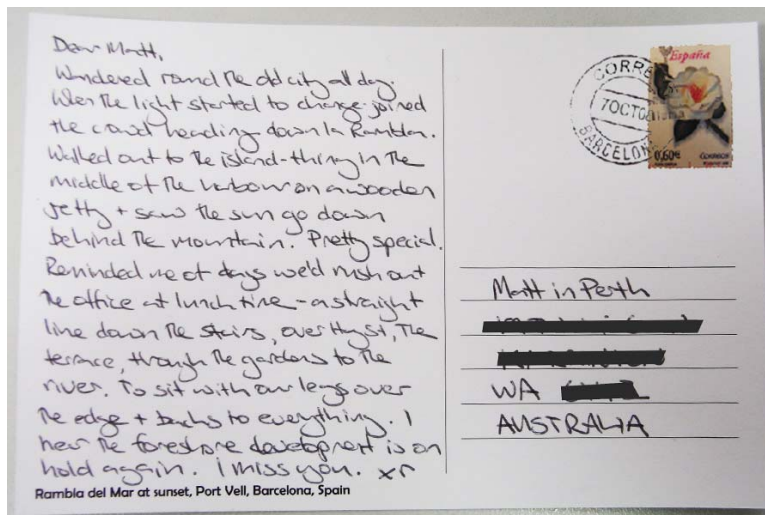 Dear Matt,
Wandered round the old city all day.
When the light started to change joined
the crowd heading down la Rambla.
Walked out to the island-thing in the
middle of the harbour on a wooden
jetty + saw the sun go down
behind the mountain. Pretty special.
Reminded me of days we'd rush out
the office at lunch time - a straight
line down the stairs, over Hay St, The
terrace, through the gardens to the
river. To sit with our legs over
the edge + backs to everything. I
hear the foreshore development is on
hold again. I miss you. xr
Rambla del Mar at sunset, Port Vell, Barcelona, Spain
España
CORRE
7OCT
BARCELON
0,60€
CORREOS
Matt in Perth
WA
AUSTRALIA